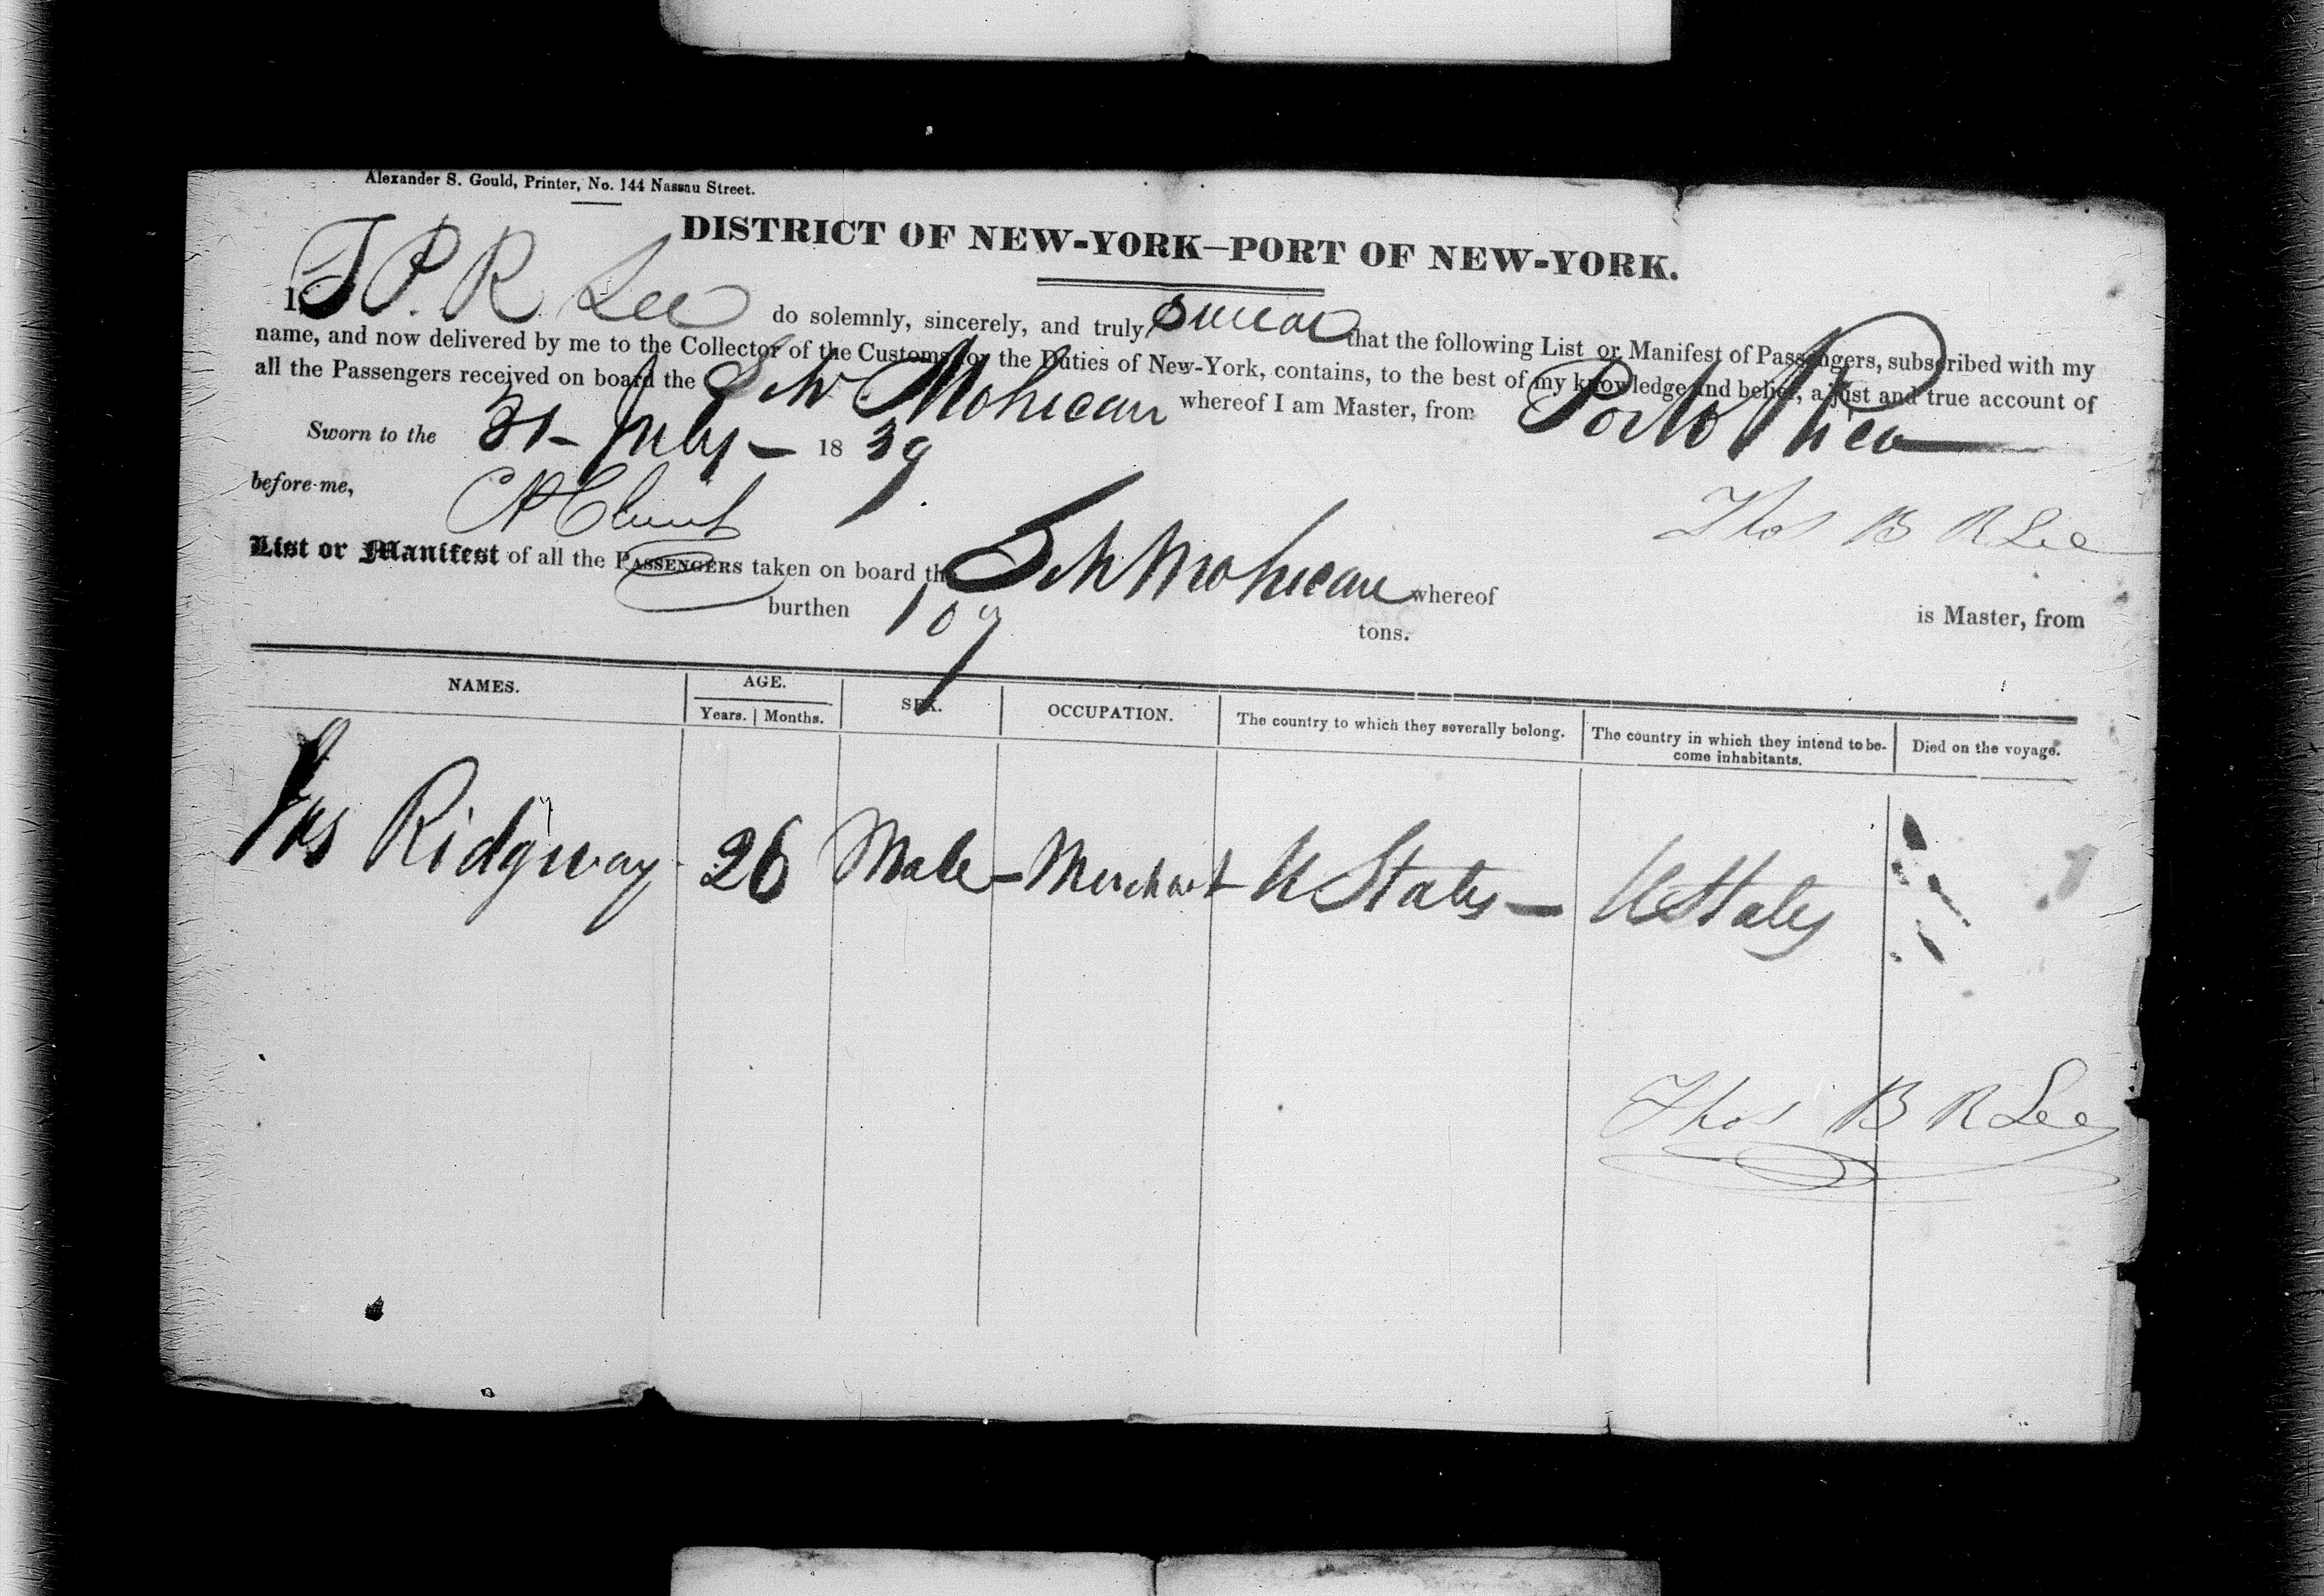 Alexander S. Gould, Printer, No. 144 Nassau Street.
DISTRICT OF NEW-YORK—PORT OF NEW-YORK.
I, T P. R Lee do solemnly, sincerely, and truly swear that the following List or Manifest of Passengers, subscribed with my
name, and now delivered by me to the Collector of the Customs for the Duties of New-York, contains, to the best of my knowledge and belief, a just and true account of
all the Passengers received on board the Schr Mohican whereof I am Master, from Porto Rico
Sworn to the 31 - July - 1839.
before me,
Thos B R Lee
List or Manifest of all the PASSENGERS taken on board the Sch Mohican whereof is Master, from
burthen 109 tons.
NAMES. AGE. SEX. OCCUPATION. The country to which they severally belong. The country in which they intend to be- Died on the voyage.
Years. Months. come inhabitants.
Ridgway 26 Male - Merchant U States - U States
Thos B R Lee